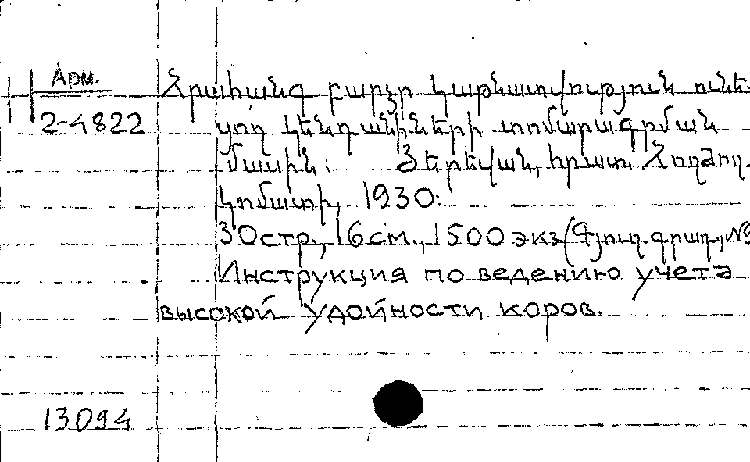 Арм.
2-4822
Հրահանգ բարձր կաթնատվություն ունե-
ցող կենդանիների տոմարագրման
մասին: Յերեվան, հրատ. Հողժող-
կոմատի, 1930:
30 стр., 16 см., 1500 экз (Գյուղ. գրադ., №
Инструкция по ведению учета
высокой удойности коров.
13094